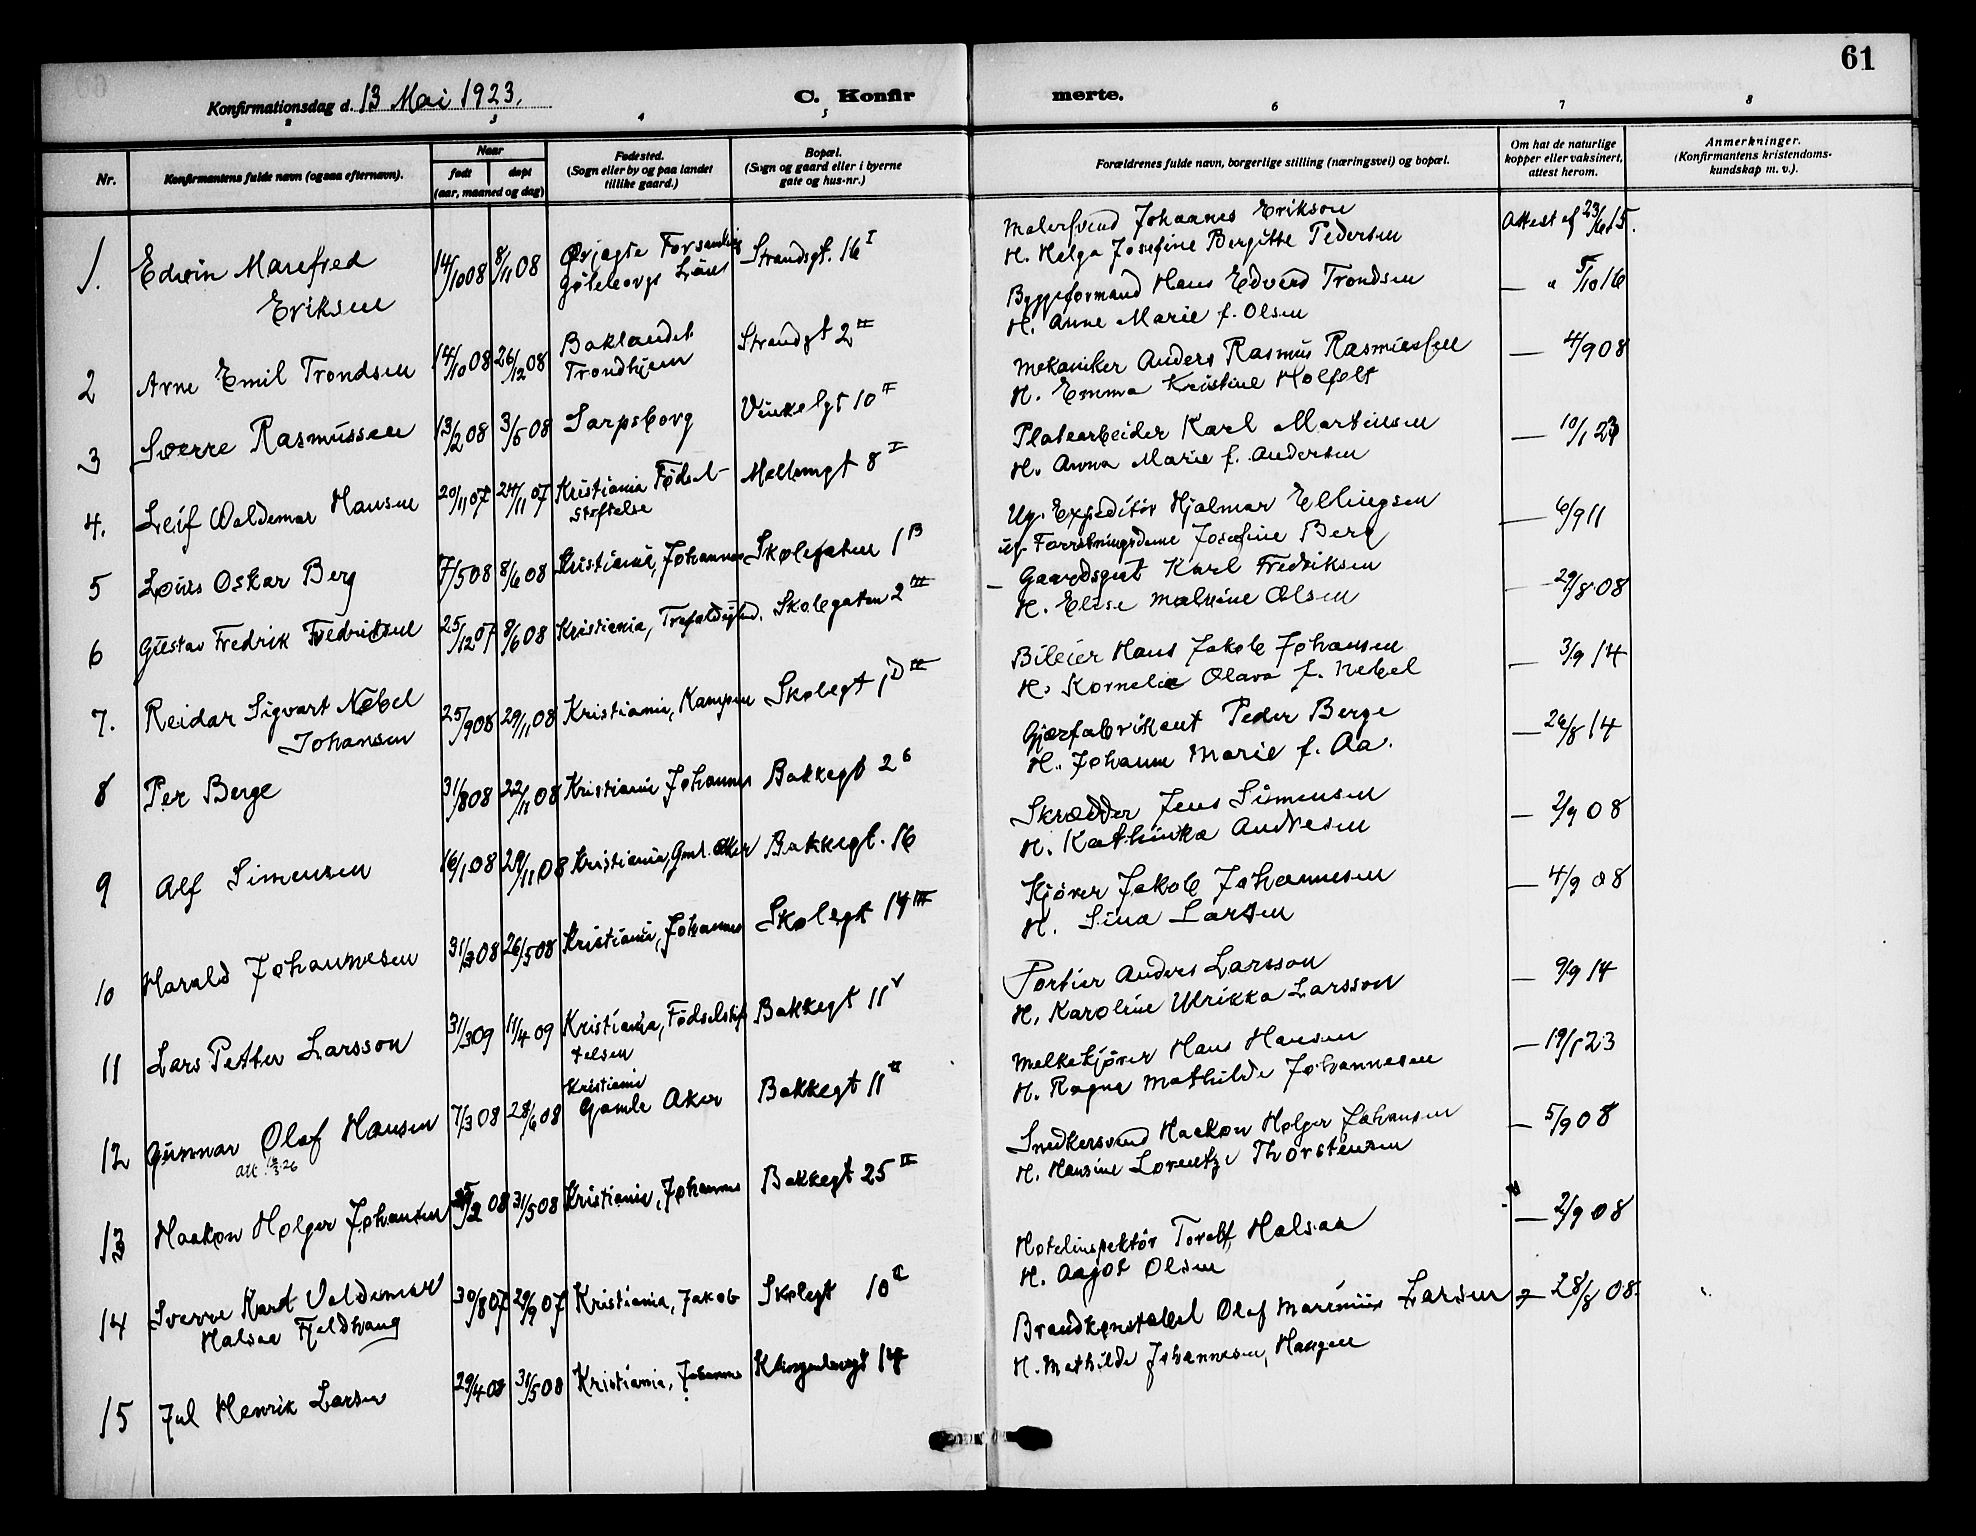 61
Konfirmationsdag d. 13 Mai 1923.
C. Konfirmerte.
2 3 4 5 6 7 8
Nr.
Konfirmantens fulde navn (ogsaa efternavn).
Naar
født
døpt
(aar, maaned og dag)
Fødested.
(Sogn eller by og paa landet
tillike gaard.)
Bopæl.
(Sogn og gaard eller i byerne
gate og hus-nr.)
Forældrenes fulde navn, borgerlige stilling (næringsvei) og bopæl.
Om hat de naturlige
kopper eller vaksinert,
attest herom.
Anmerkninger.
(Konfirmantens kristendoms-
kundskap m. v.).
1. Edwin Manfred
Eriksen
14/10 08 8/11 08
Gøteborgs Län
Strandgt. 16 I
Malersvend Johannes Erikson
H. Helga Josefine Bergitte Pedersen
Attest af
2 Arne Emil Trondsen
14/10 08 26/12 08
Baklandet
Trondhjem
Strandgt 2 II
Byggeformand Hans Edvard Trondsen
H. Anne Marie f. Olsen
— " 5/10 16
3 Sverre Rasmussen
13/2 08 3/5 08
Sarpsborg
Vinkelgt 10 II
Mekaniker Anders Rasmus Rasmussen
H. Emma Kristine Holfelt
— 4/9 08
4. Leif Waldemar Hansen
20/11 07 24/11 07
Kristiania Fødsel-
stiftelse
Mellemgt 8 I
Platearbeider Karl Martinsen
H. Anna Marie f. Andersen
— 10/1 23
5 Louis Oskar Berg
7/5 08 8/6 08
Kristiania, Johannes
Skolegaten 1 B
Ug. Expeditør Hjalmar Ellingsen
ug. Forretningsdame Josefine Berg
— 6/9 11
6 Gustav Fredrik Fredriksen
25/12 07 8/6 08
Kristiania, Trefoldighed.
Skolegaten 2 III
Gaardsgut Karl Fredriksen
H. Elise Malvine Olsen
— 29/8 08
7. Reidar Sigvart Nebel
Johansen
25/9 08 29/11 08
Kristiania, Kampen
Skolegt 1 D III
Bileier Hans Jakob Johansen
H. Kornelia Olava f. Nebel
— 3/9 14
8 Per Berge
31/8 08 22/11 08
Kristiania Johannes
Bakkegt 2 b
Gjærfabrikant Peder Berge
H. Johanne Marie f. Aa.
— 26/8 14
9 Alf Simensen
16/1 08 29/11 08
Kristiania, Gml. Aker
Bakkegt. 16
Skrædder Jens Simensen
H. Kathinka Andresen
— 2/9 08
10 Harald Johannesen
31/3 08 26/5 08
Kristiania, Johannes
Skolegt 14 III
Kjører Jakob Johannesen
H. Sina Larsen
— 4/9 08
11 Lars Petter Larsson
31/3 09 11/4 09
Kristiania, Fødselstif
telsen
Bakkegt 11 V
Portier Anders Larsson
H. Karoline Ulrikka Larsson
— 9/9 14
12 Gunnar Olaf Hansen
7/3 08 28/6 08
Kristiania
Gamle Aker
Bakkegt 11 II
Melkekjører Hans Hansen
H. Ragna Mathilde Johannesen
— 19/1 23
13 Haakon Holger Johansen
31/5 08
Kristiania, Johannes
Bakkegt 25 II
Snedkersvend Haakon Holger Johansen
H. Hansine Lorentze Thorstensen
— 5/9 08
14 Sverre Kardt Valdemar
Halsaa Fjeldvang
30/8 07 29/9 07
Kristiania, Jakob
Skolegt 10 II
Hotelinspektør Toralf Halsaa
H. Aagot Olsen
— 2/9 08
15 Jul Henrik Larsen
29/4 08 31/5 08
Kristiania, Johannes
Klingenberggt 14
Brandkonstabel Olaf Marenius Larsen
H. Mathilde Johannesen, Haugen
— 28/8 08.